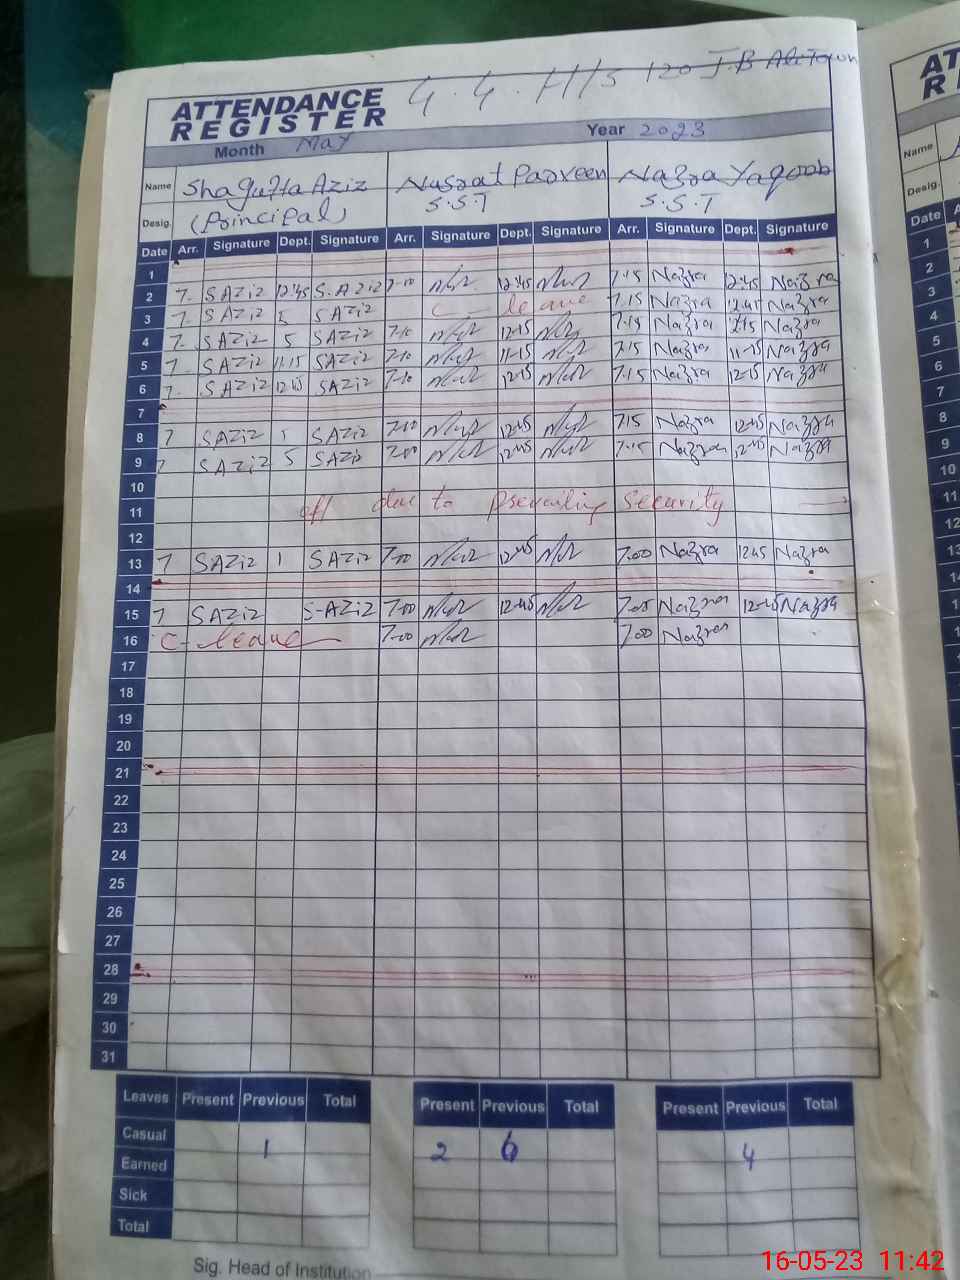 G.G.H/S 120 J.B Ali Town
ATTENDANCE
REGISTER
Month May Year 2023
Name Shagufta Aziz Nusrat Parveen Nazra Yaqoob
Desig. (Principal) S.S.T S.S.T
Date Arr. Signature Dept. Signature Arr. Signature Dept. Signature Arr. Signature Dept. Signature
1
2 7. SAziz 12:45 S.Aziz 7-10 12:45 7.15 Nazra 12:45 Nazra
3 7. SAziz 5 SAziz C. leave 7.15 Nazra 12:45 Nazra
4 7. SAziz 5 SAziz 7-10 12-15 7-15 Nazra 12.15 Nazra
5 7. SAziz 11.15 SAziz 7-10 11-15 7.15 Nazra 11-15 Nazra
6 7. SAziz 12:15 SAziz 7-10 12-15 7.15 Nazra 12-15 Nazra
7
8 7 SAziz 1 SAziz 7-00 12:45 7.15 Nazra 12:45 Nazra
9 7 SAziz 5 SAziz 7-00 12:45 7-15 Nazra 12:45 Nazra
10
11 off due to prevailing security
12
13 7 SAziz 1 SAziz 7-00 12:45 7.00 Nazra 1245 Nazra
14
15 7 SAziz S-Aziz 7-00 12-45 7-05 Nazra 12-45 Nazra
16 C-leave 7-00 7.00 Nazra
17
18
19
20
21
22
23
24
25
26
27
28
29
30
31
Leaves Present Previous Total Present Previous Total Present Previous Total
Casual 1 2 6 4
Earned
Sick
Total
Sig. Head of Institution
16-05-23 11:42
AT
R
Name
Desig.
Date
1
2
3
4
5
6
7
8
9
10
11
12
13